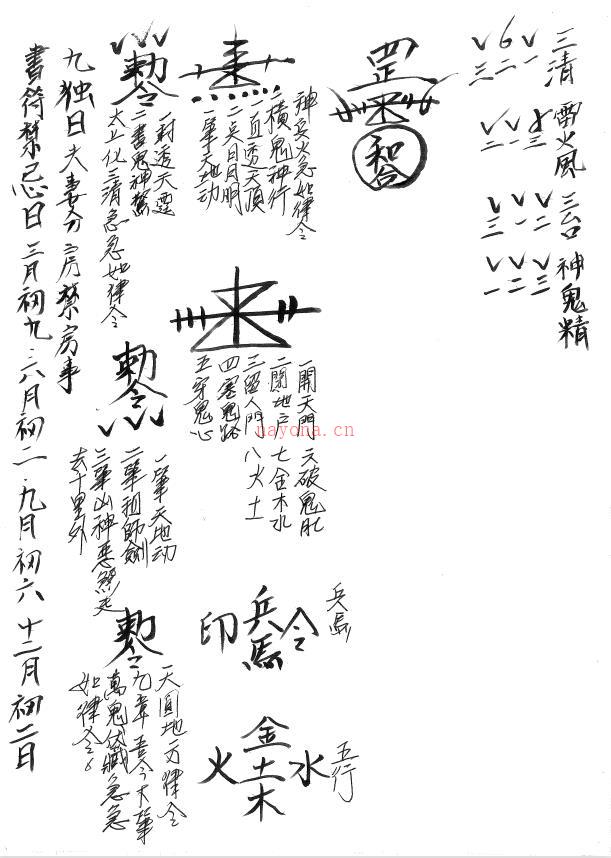 三清
雷火風
三台
神鬼精
罡
和合
神兵火急如律令
一橫鬼神行
一直透天頂
二点日月明
一筆天地动
勅令
一射透天霊
二書鬼神驚
太上化三清急急如律令
九独日夫妻分房禁房事
書符禁忌日三月初九.六月初二.九月初六十二月初二日
一開天門六破鬼肚
二閉地户七金木水
三留人門八火土
四塞鬼路
五穿鬼心
勅令
一筆天地动
二筆祖師劍
三筆山神惡煞走
去十里外
兵馬
印兵馬令
勅令
一天圓地方律令
九章吾今下筆
萬鬼伏藏急急
如律令
五行
金
火土水
木
nayona.cn